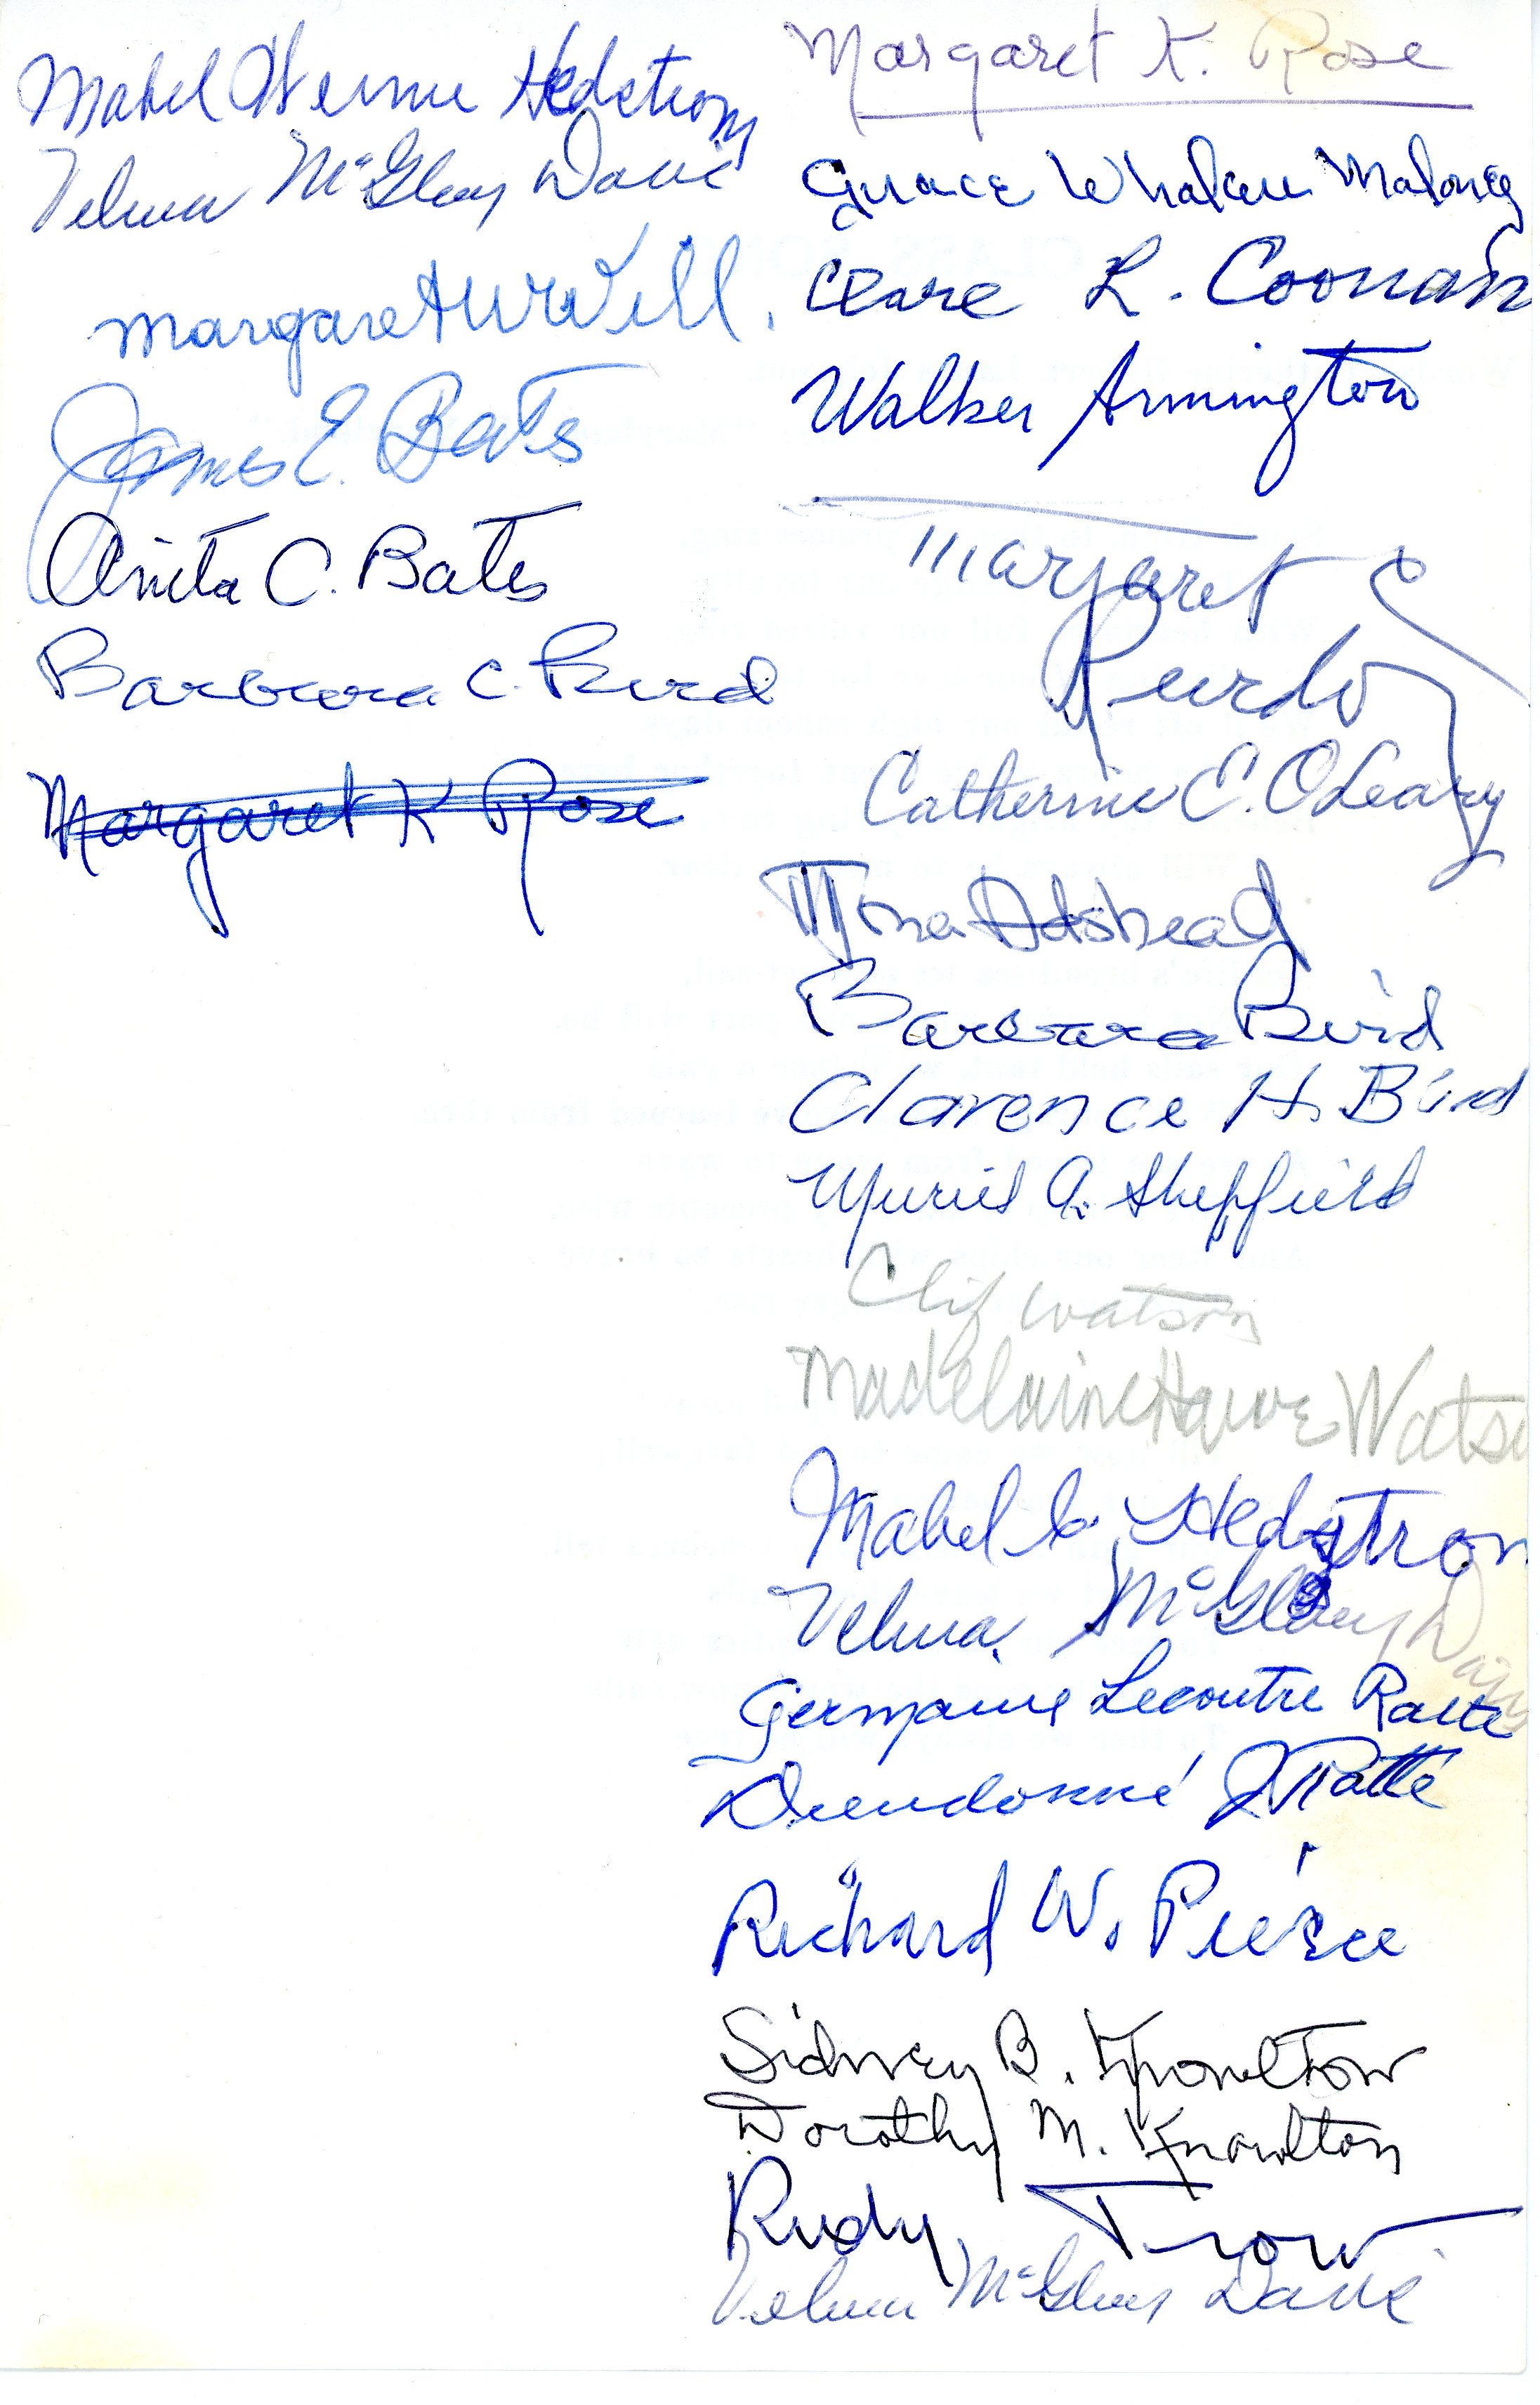 Mabel Hedstrom
Velma McGlory Davis
Margaret
James E. Bates
Anita C. Bates
Barbara C. Bird
Margaret K Rose
Margaret K. Rose
Grace Whalen Maloney
Clare L. Coonan
Walker Armington
Margaret C
Purdo
Catherine E. O'Leary
Mona Adshead
Barbara Bird
Clarence H. Bird
Muriel A. Sheffield
Clif Watson
Madelaine Watson
Mabel C. Hedstrom
Velma McGlory Davis
Germaine Lecoutre Ratté
Dieudonné J. Ratté
Richard W. Pierce
Sidney B. Knowlton
Dorothy M. Knowlton
Rudy Trow
Velma McGlory Davis